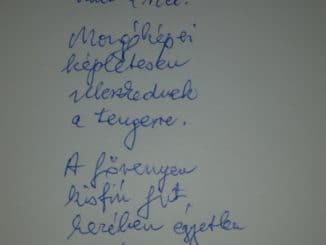 Mozgóképei
képletesen
a tengerre.
A fövenyen
kisfiú fut,
kezében egyetlen